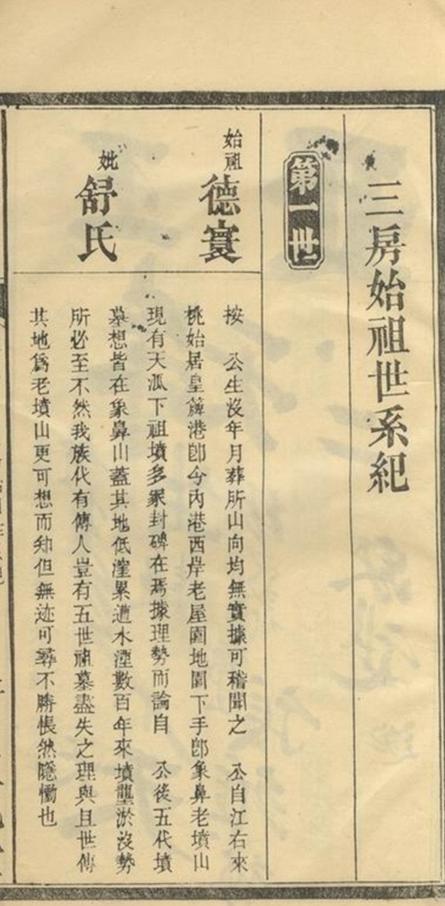 三房始祖世系紀
第一世
始祖 德寰
妣 舒氏
按 公生沒年月葬所山向均無實據可稽聞之 公自江右來
桃始居皇籜港卽今內港西岸老屋園地園下手卽象鼻老墳山
現有天派下祖墳多冢封碑在焉據理勢而論自 公後五代墳
墓想皆在象鼻山蓋其地低漥累遭水湮數百年來墳壟淤沒勢
所必至不然我族代有傳人豈有五世祖墓盡失之理與且世傳
其地爲老墳山更可想而知但無迹可尋不勝悵然隱慟也